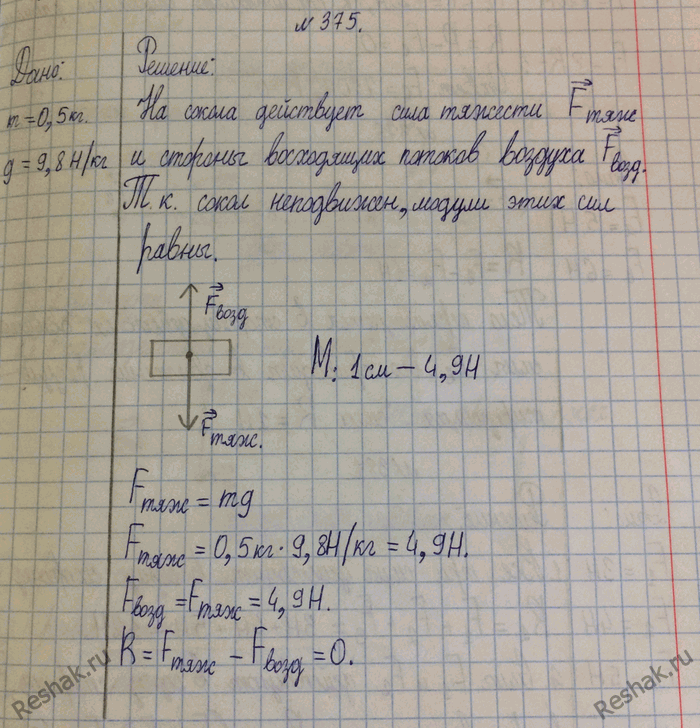 № 375.
Дано:
m = 0,5 кг.
g = 9,8 Н/кг
Решение:
На сокола действует сила тяжести F⃗тяж
и стороны восходящих потоков воздуха F⃗возд.
Т.к. сокол неподвижен, модули этих сил
равны.
F⃗возд
F⃗тяж.
М: 1 см — 4,9 Н
Fтяж = mg
Fтяж = 0,5 кг · 9,8 Н/кг = 4,9 Н.
Fвозд = Fтяж = 4,9 Н.
R = Fтяж – Fвозд = 0.
Reshak.ru
Reshak.ru